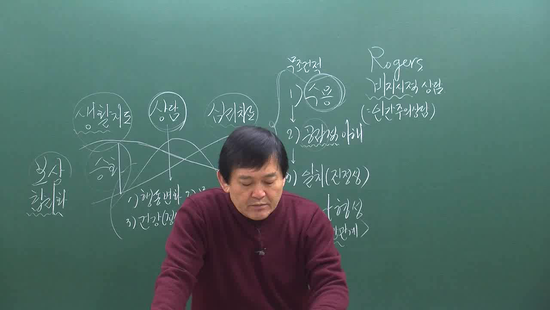 Rogers
비지시적 상담
(:인간주의상담)
무조건적
1) 수용
2) 공감적 이해
3) 일치(진정성)
형성
관계>
생활지도
상담
심리치료
승화
보상
합리화
1) 행동변화 2)
3) 건강(정